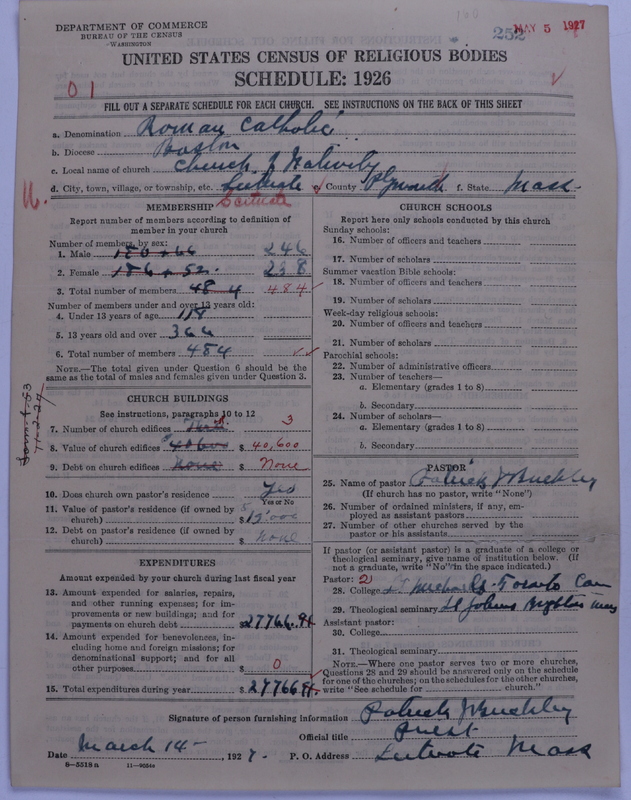 DEPARTMENT OF COMMERCE
BUREAU OF THE CENSUS
WASHINGTON
252
MAY 5 1927
UNITED STATES CENSUS OF RELIGIOUS BODIES
SCHEDULE: 1926
01
FILL OUT A SEPARATE SCHEDULE FOR EACH CHURCH. SEE INSTRUCTIONS ON THE BACK OF THIS SHEET
a. Denomination Roman Catholic
b. Diocese Boston
c. Local name of church Church of Nativity
d. City, town, village, or township, etc. Scituate e. County Plymouth f. State Mass.
Scituate
MEMBERSHIP
Report number of members according to definition of member in your church
Number of members, by sex:
1. Male 180 + 66 246
2. Female 186 + 52 238
3. Total number of members 484 484
Number of members under and over 13 years old:
4. Under 13 years of age 118
5. 13 years old and over 366
6. Total number of members 484
NOTE.—The total given under Question 6 should be the
same as the total of males and females given under Question 3.
CHURCH BUILDINGS
See instructions, paragraphs 10 to 12
7. Number of church edifices 3
8. Value of church edifices 40600 $ 40,600
9. Debt on church edifices None $ None
10. Does church own pastor's residence Yes
Yes or No
11. Value of pastor's residence (if owned by
church) $ 15,000
12. Debt on pastor's residence (if owned by
church) $ None
EXPENDITURES
Amount expended by your church during last fiscal year
13. Amount expended for salaries, repairs,
and other running expenses; for im-
provements or new buildings; and for
payments on church debt $ 27766.94
14. Amount expended for benevolences, in-
cluding home and foreign missions; for
denominational support; and for all
other purposes $ 0
15. Total expenditures during year $ 27766.94
CHURCH SCHOOLS
Report here only schools conducted by this church
Sunday schools:
16. Number of officers and teachers
17. Number of scholars
Summer vacation Bible schools:
18. Number of officers and teachers
19. Number of scholars
Week-day religious schools:
20. Number of officers and teachers
21. Number of scholars
Parochial schools:
22. Number of administrative officers
23. Number of teachers—
a. Elementary (grades 1 to 8)
b. Secondary
24. Number of scholars—
a. Elementary (grades 1 to 8)
b. Secondary
PASTOR
25. Name of pastor Patrick J Buckley
(If church has no pastor, write "None")
26. Number of ordained ministers, if any, em-
ployed as assistant pastors
27. Number of other churches served by the
pastor or his assistants
If pastor (or assistant pastor) is a graduate of a college or
theological seminary, give name of institution below. (If
not a graduate, write "No" in the space indicated.)
Pastor: 2
28. College St Michaels Toronto Can
29. Theological seminary St Johns Brighton Mass
Assistant pastor:
30. College
31. Theological seminary
NOTE.—Where one pastor serves two or more churches,
Questions 28 and 29 should be answered only on the schedule
for one of the churches; on the schedules for the other churches,
write "See schedule for church."
Signature of person furnishing information Patrick J Buckley
Official title Priest
Date March 14, 1927. P. O. Address Scituate Mass
8-5518 a